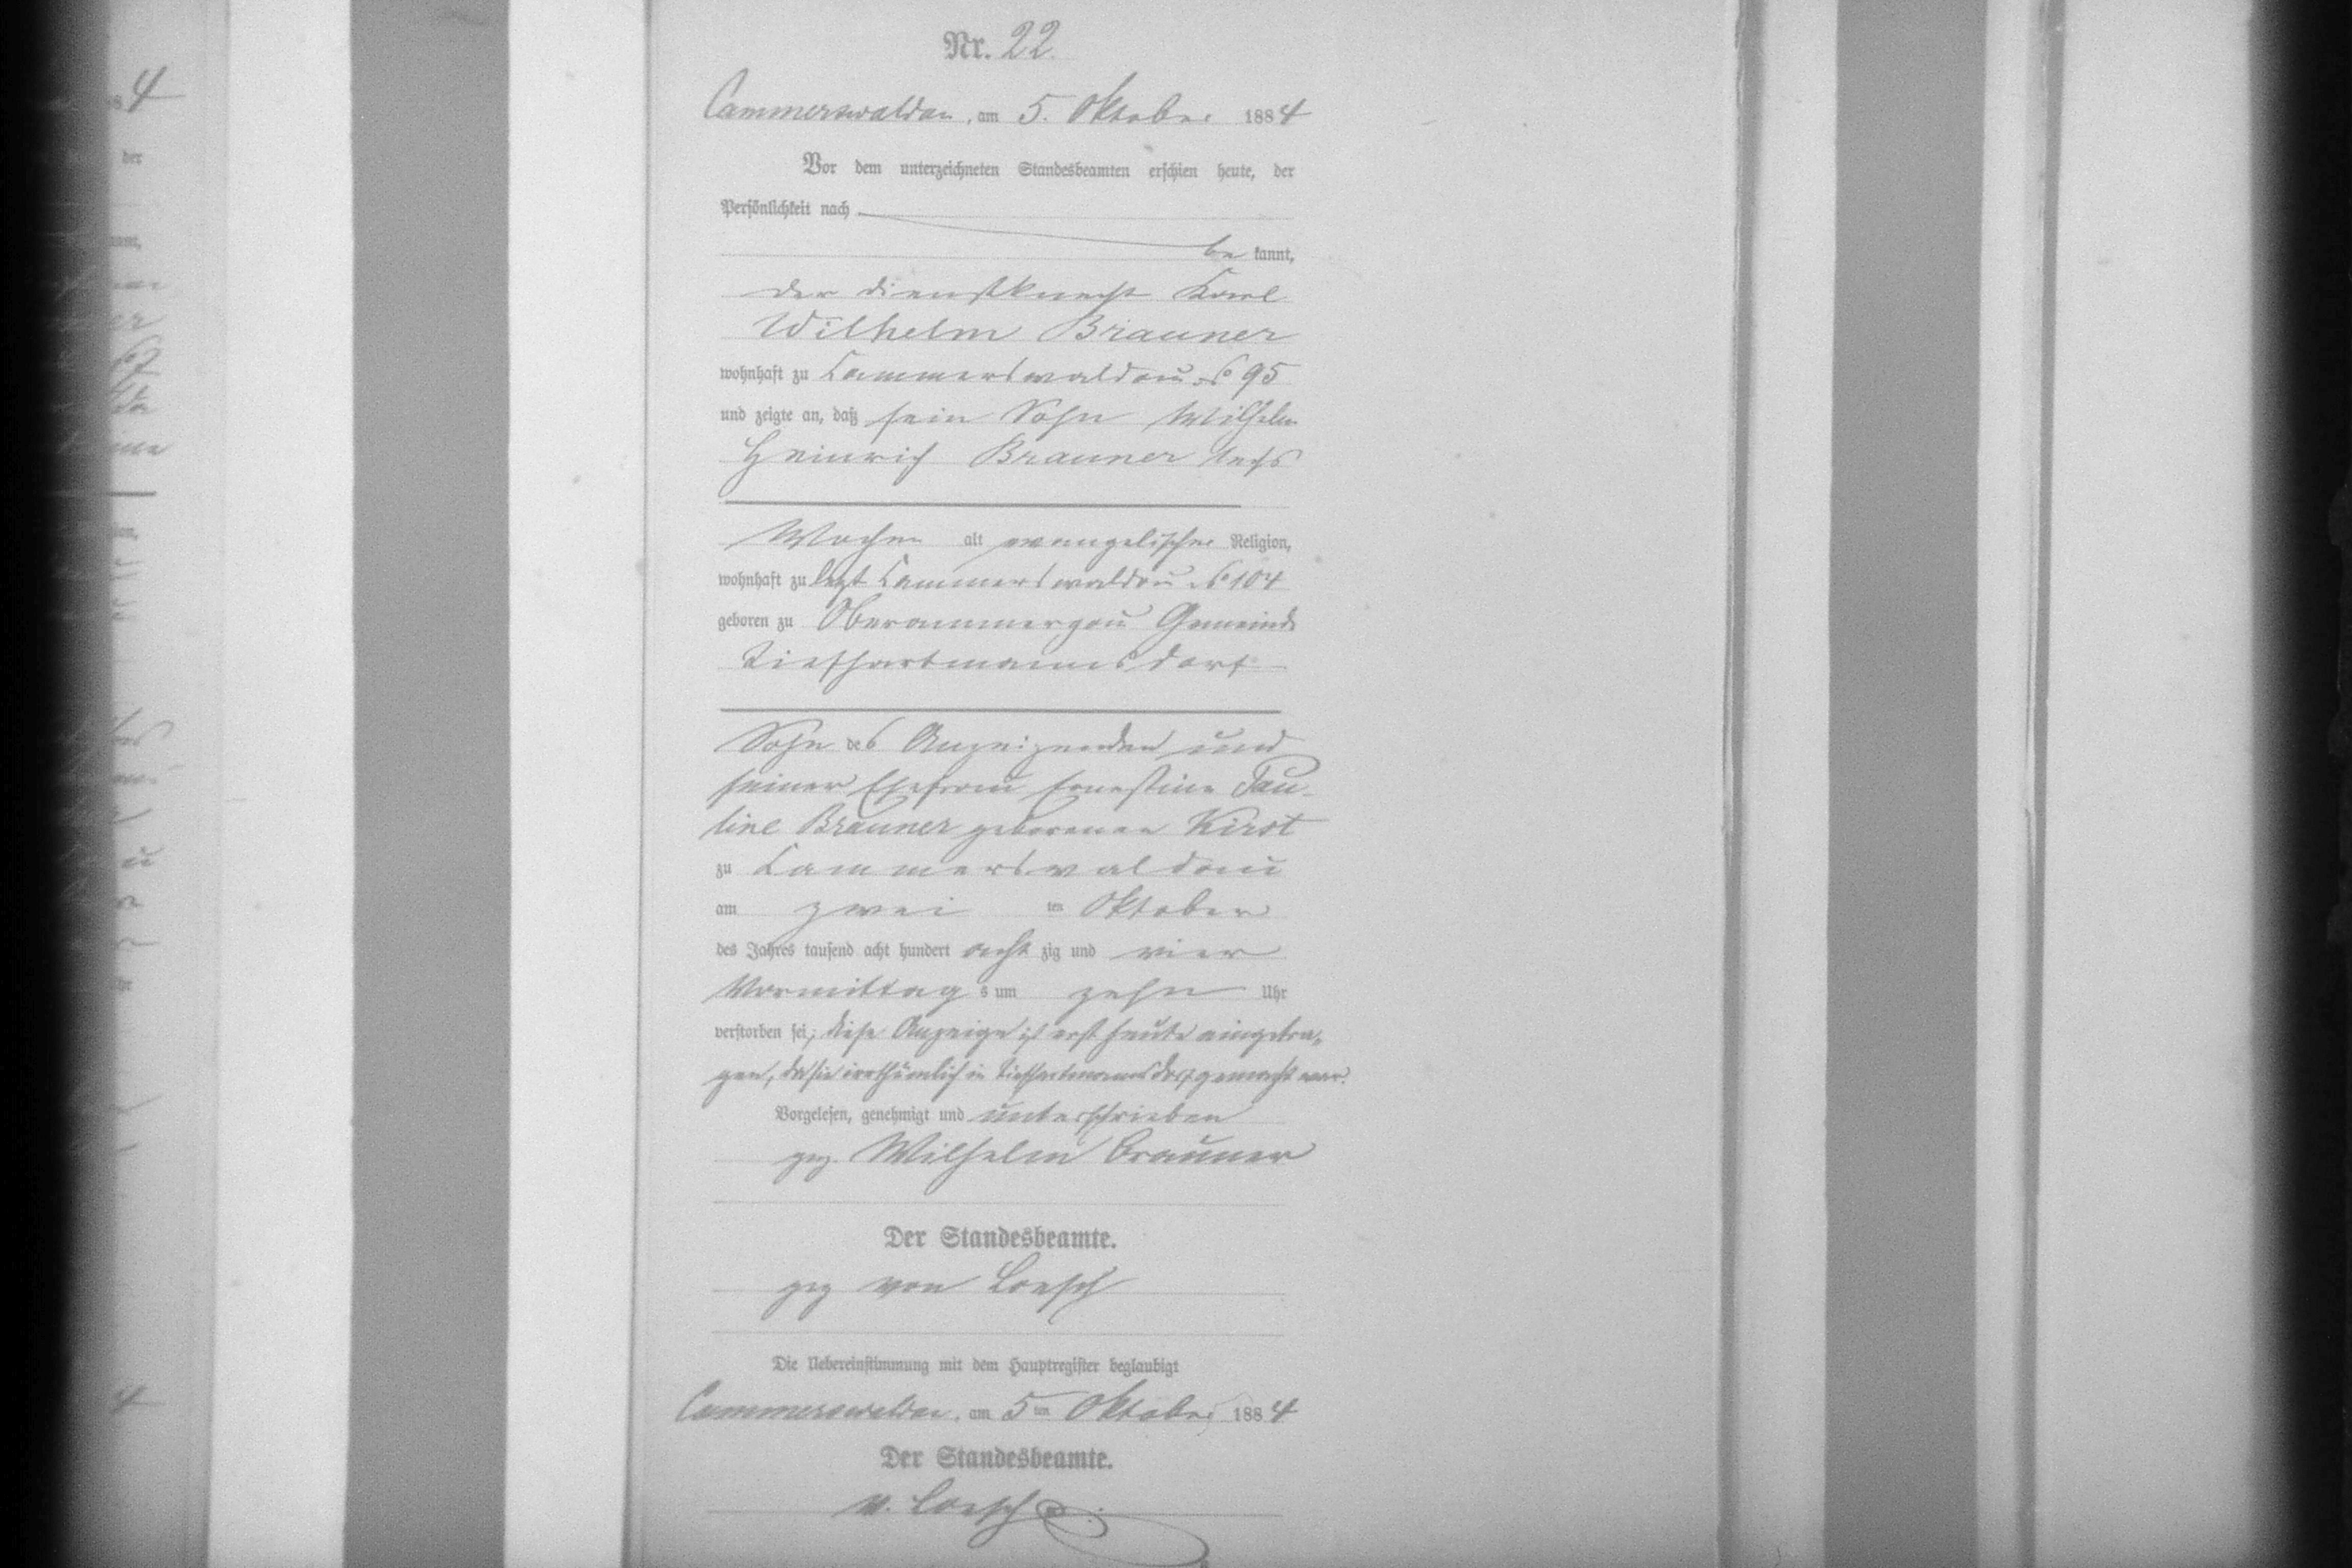 Nr. 22.
Cammerswaldau, am 5. Oktober 1884
Vor dem unterzeichneten Standesbeamten erschien heute, der
Persönlichkeit nach
be kannt,
der Dienstknecht Karl
Wilhelm Brauner
wohnhaft zu Cammerswaldau No 95
und zeigte an, daß sein Sohn Wilhelm
Heinrich Brauner sechs
Wochen alt evangelischer Religion,
wohnhaft zu letzt Cammerswaldau No 104
geboren zu Oberammergau Gemeinde
Tiefhartmannsdorf
Sohn des Anzeigenden und
seiner Ehefrau Ernestine Pau-
line Brauner geborenen Kirst
zu Cammerswaldau
am zwei ten Oktober
des Jahres tausend acht hundert acht zig und vier
Vormittag s um zehn Uhr
verstorben sei; diese Anzeige ist erst heute eingetra-
gen, da sie irrthümlich in Tiefhartmannsdorf gemacht war.
Vorgelesen, genehmigt und unterschrieben
gez. Wilhelm Brauner
Der Standesbeamte.
gez von Loesch
Die Uebereinstimmung mit dem Hauptregister beglaubigt
Cammerswaldau, am 5 ten Oktober 1884
Der Standesbeamte.
v. Loesch